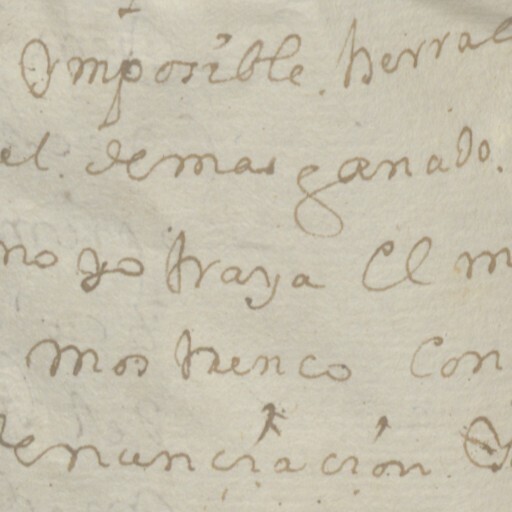 Ymposible. herral
el. demas ganado.
no yo traya El m
mostrenco Con
denunciacion.